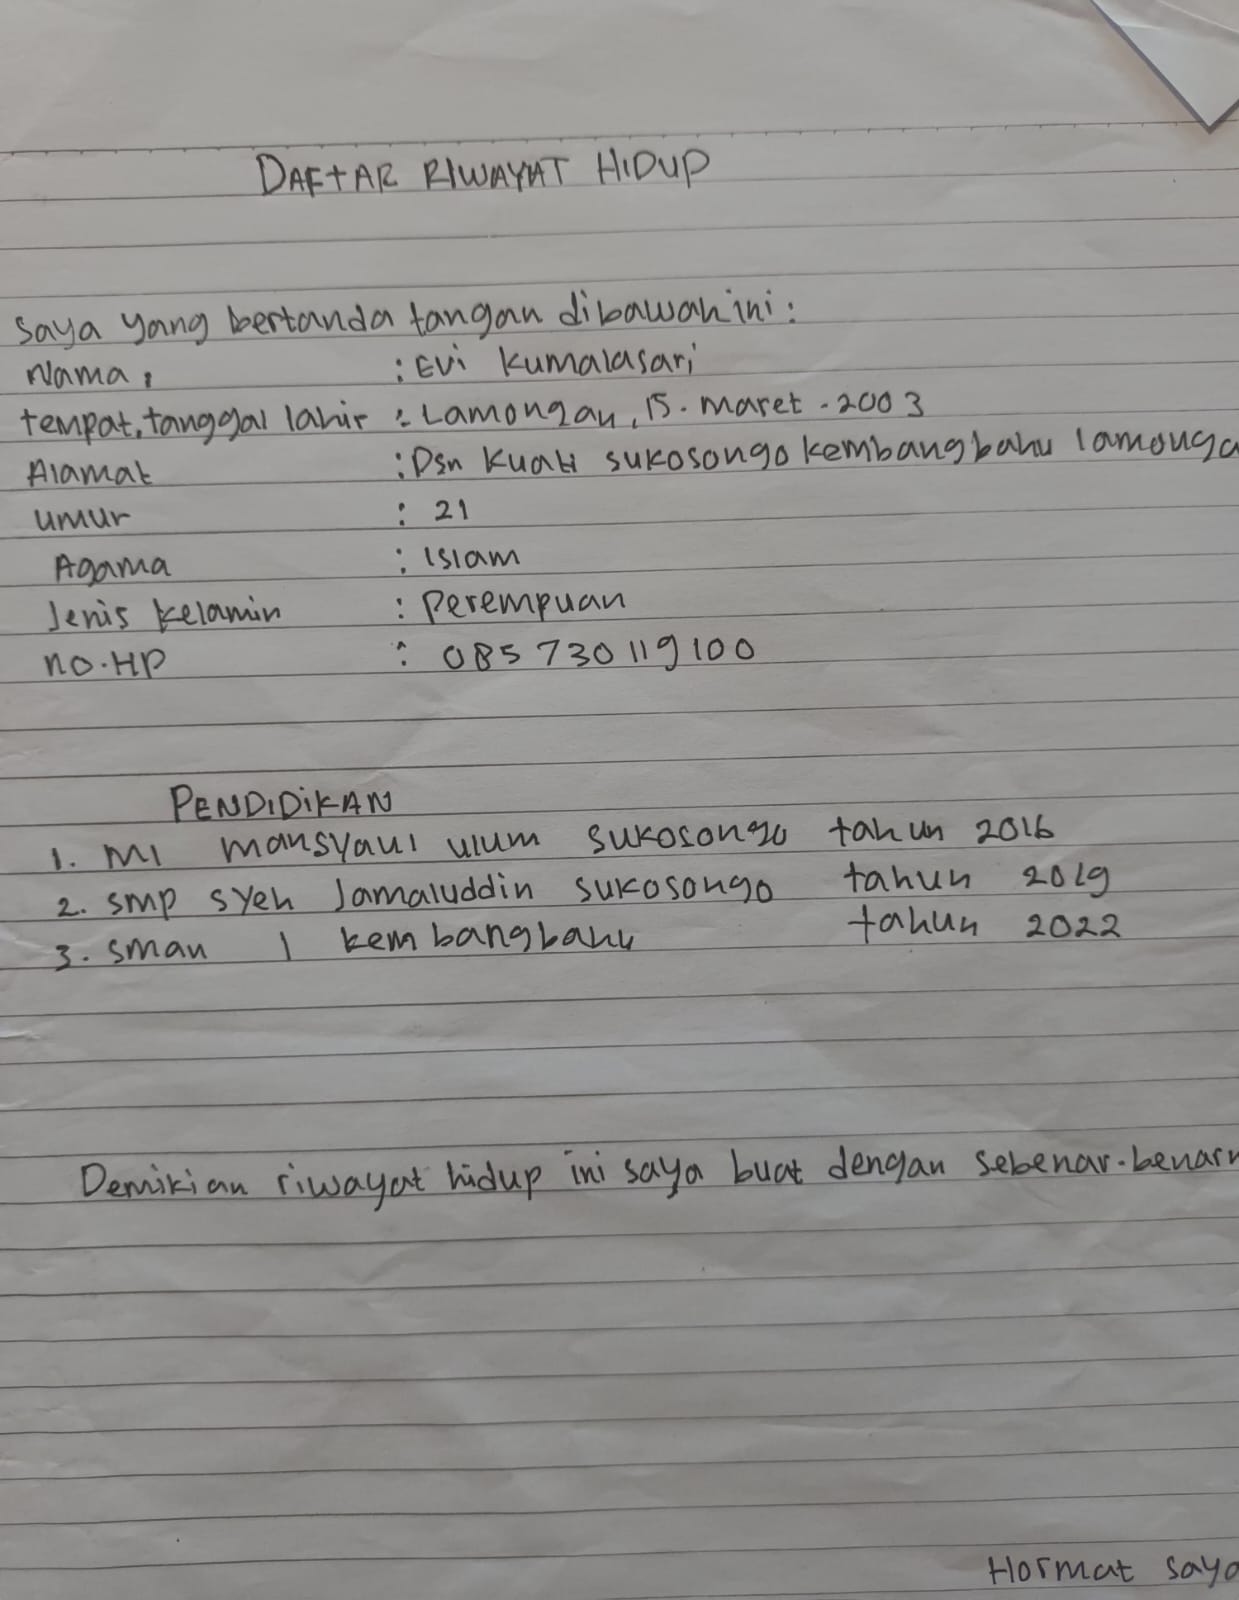 DAFTAR RIWAYAT HIDUP
Saya yang bertanda tangan dibawah ini :
Nama, : Evi Kumalasari
tempat, tanggal lahir : Lamongan, 15. maret - 2003
Alamat : Dsn Kuati sukosongo kembangbahu lamonga
umur : 21
Agama : Islam
Jenis kelamin : perempuan
no. HP : 085 730 119 100
PENDIDIKAN
1. MI mansyaul ulum sukosongo tahun 2016
2. smp syeh Jamaluddin sukosongo tahun 2019
3. sman 1 kembangbahu tahun 2022
Demikian riwayat hidup ini saya buat dengan sebenar-benarn
Hormat saya